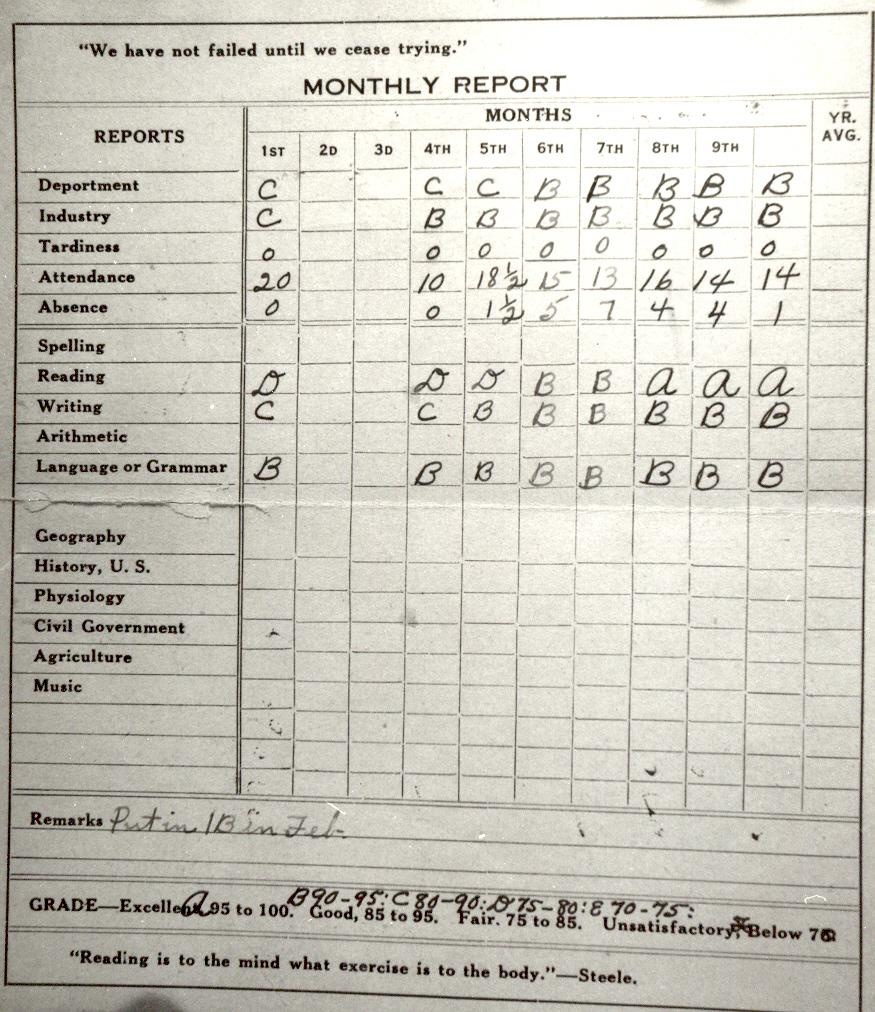 "We have not failed until we cease trying."
MONTHLY REPORT
REPORTS MONTHS YR. AVG.
1ST 2D 3D 4TH 5TH 6TH 7TH 8TH 9TH
Deportment C C C B B B B B
Industry C B B B B B B B
Tardiness 0 0 0 0 0 0 0 0
Attendance 20 10 18½ 15 13 16 14 14
Absence 0 0 1½ 5 7 4 4 1
Spelling
Reading D D D B B A A A
Writing C C B B B B B B
Arithmetic
Language or Grammar B B B B B B B B
Geography
History, U. S.
Physiology
Civil Government
Agriculture
Music
Remarks Put in 1B in Feb.
B 90-95: C 80-90: D 75-80: E 70-75:
GRADE—Excellent, A 95 to 100. Good, 85 to 95. Fair. 75 to 85. Unsatisfactory, Below 70
"Reading is to the mind what exercise is to the body."—Steele.